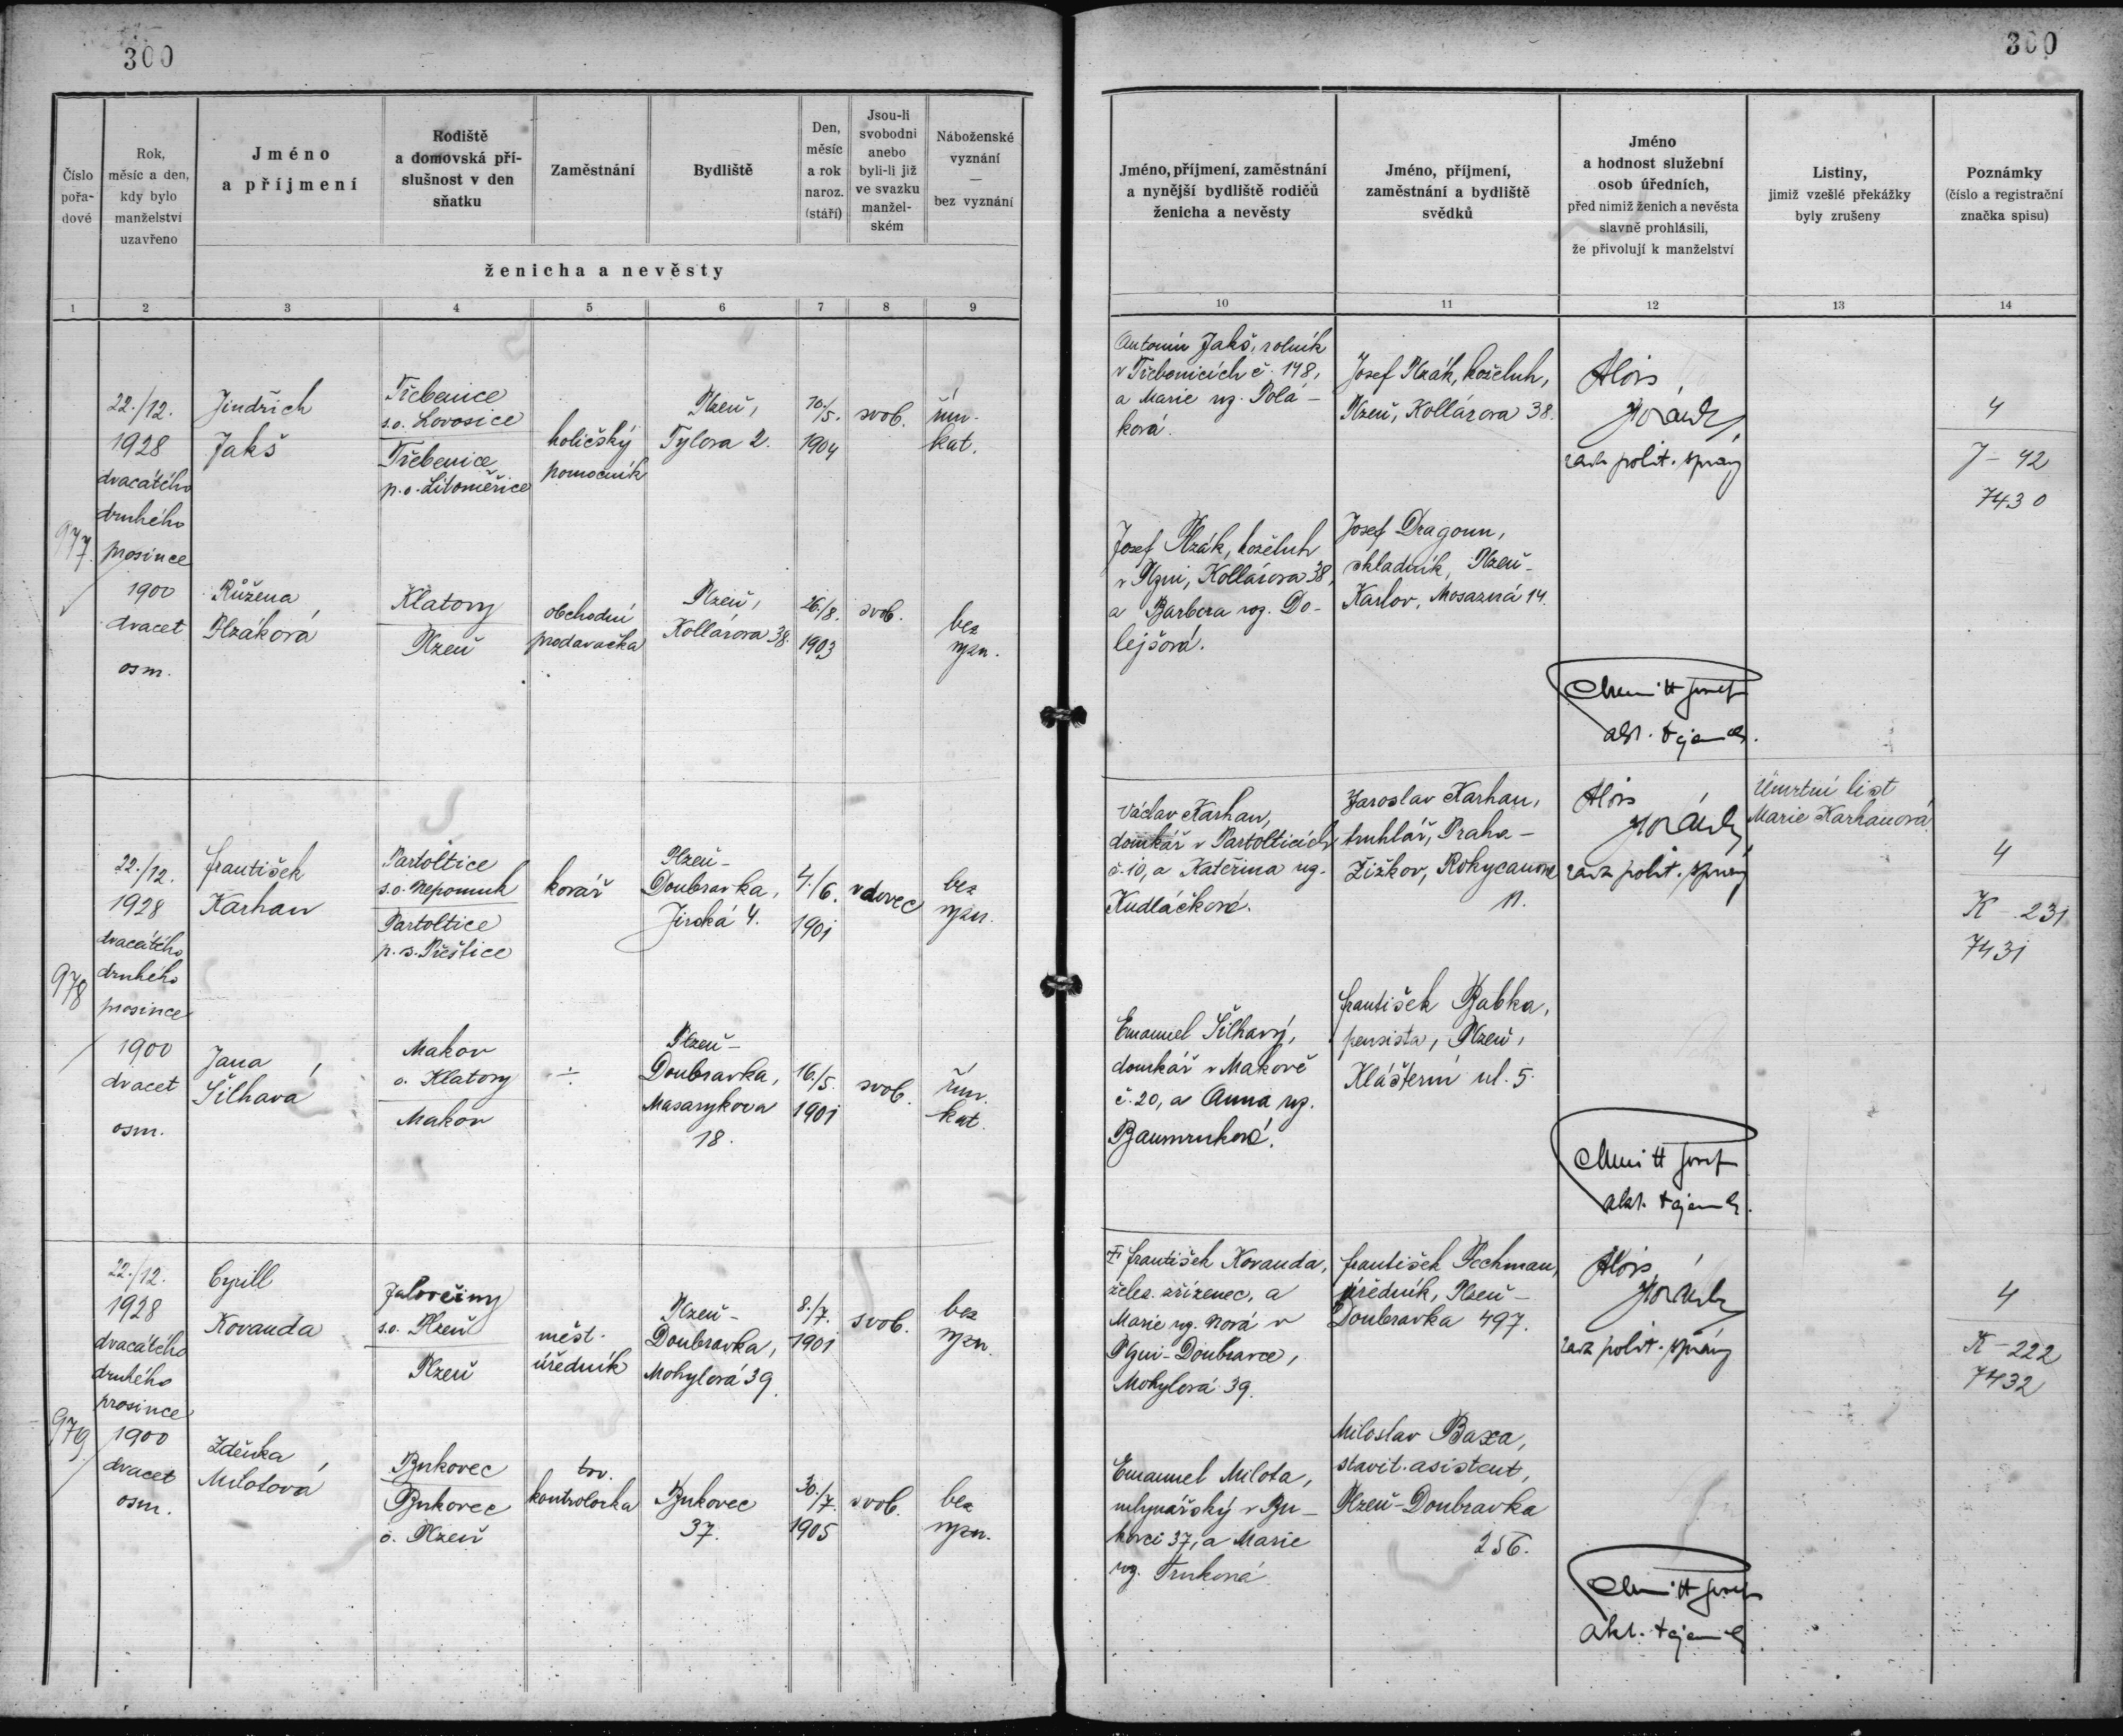 300
300
Číslo
pořa-
dové
Rok,
měsíc a den,
kdy bylo
manželství
uzavřeno
Jméno
a příjmení
Rodiště
a domovská pří-
slušnost v den
sňatku
Zaměstnání
Bydliště
Den,
měsíc
a rok
naroz.
(stáří)
Jsou-li
svobodni
anebo
byli-li již
ve svazku
manžel-
ském
Náboženské
vyznání
—
bez vyznání
ženicha a nevěsty
Jméno, příjmení, zaměstnání
a nynější bydliště rodičů
ženicha a nevěsty
Jméno, příjmení,
zaměstnání a bydliště
svědků
Jméno
a hodnost služební
osob úředních,
před nimiž ženich a nevěsta
slavně prohlásili,
že přivolují k manželství
Listiny,
jimiž vzešlé překážky
byly zrušeny
Poznámky
(číslo a registrační
značka spisu)
1 2 3 4 5 6 7 8 9 10 11 12 13 14
977.
22./12.
1928
dvacátého
druhého
prosince
1900
dvacet
osm.
Jindřich
Jakš
Třebenice
s.o. Lovosice
Třebenice
p.o. Litoměřice
holičský
pomocník
Plzeň,
Tylova 2.
10./5.
1904
svob.
řím.
kat.
Antonín Jakš, rolník
v Třebenicích č. 148,
a Marie roz. Polá-
ková.
Josef Plzák, koželuh,
Plzeň, Kollárova 38.
Alois
rada polit. správy
4
J - 42
7430
Růžena
Plzáková
Klatovy
Plzeň
obchodní
prodavačka
Plzeň,
Kollárova 38.
26./8.
1903
svob.
bez
vyzn.
Josef Plzák, koželuh
v Plzni, Kollárova 38,
a Barbora roz. Do-
lejšová.
Josef Dragoun,
skladník, Plzeň-
Karlov, Mosazná 14.
Josef
akt. tajemník.
978
22./12.
1928
dvacátého
druhého
prosince
1900
dvacet
osm.
František
Karhan
Partoltice
s.o. Nepomuk
Partoltice
p.o. Přeštice
kovář
Plzeň-
Doubravka,
Jirská 4.
4./6.
1901
vdovec
bez
vyzn.
Václav Karhan,
domkář v Partolticích
č. 10, a Kateřina roz.
Kudláčková.
Jaroslav Karhan,
truhlář, Praha-
Žižkov, Rokycanova
11.
Alois
rada polit. správy
Úmrtní list
Marie Karhanová
4
K - 231
7431
Jana
Šilhavá
Makov
o. Klatovy
Makov
÷
Plzeň-
Doubravka,
Masarykova
18.
16./5.
1901
svob.
řím.
kat.
Emanuel Šilhavý,
domkář v Makově
č. 20, a Anna roz.
Baumruková.
František Babka,
pensista, Plzeň,
Klášterní ul. 5.
Josef
akt. tajemník.
979.
22./12.
1928
dvacátého
druhého
prosince
1900
dvacet
osm.
Cyrill
Kovanda
s.o. Plzeň
Plzeň
měst.
úředník
Plzeň-
Doubravka,
Mohylová 39.
8./7.
1901
svob.
bez
vyzn.
† František Kovanda,
želez. zřízenec, a
Marie roz. Nová v
Plzni-Doubravce,
Mohylová 39.
František Pechman,
úředník, Plzeň-
Doubravka 497.
Alois
rada polit. správy
4
K - 222
7432
Zdeňka
Milotová
Bukovec
Bukovec
o. Plzeň
tov.
kontrolorka
Bukovec
37.
30./7.
1905
svob.
bez
vyzn.
Emanuel Milota,
mlynářský v Bu-
kovci 37, a Marie
roz. Trnková
Miloslav Baxa,
stavit. asistent,
Plzeň-Doubravka
256.
Josef
akt. tajemník